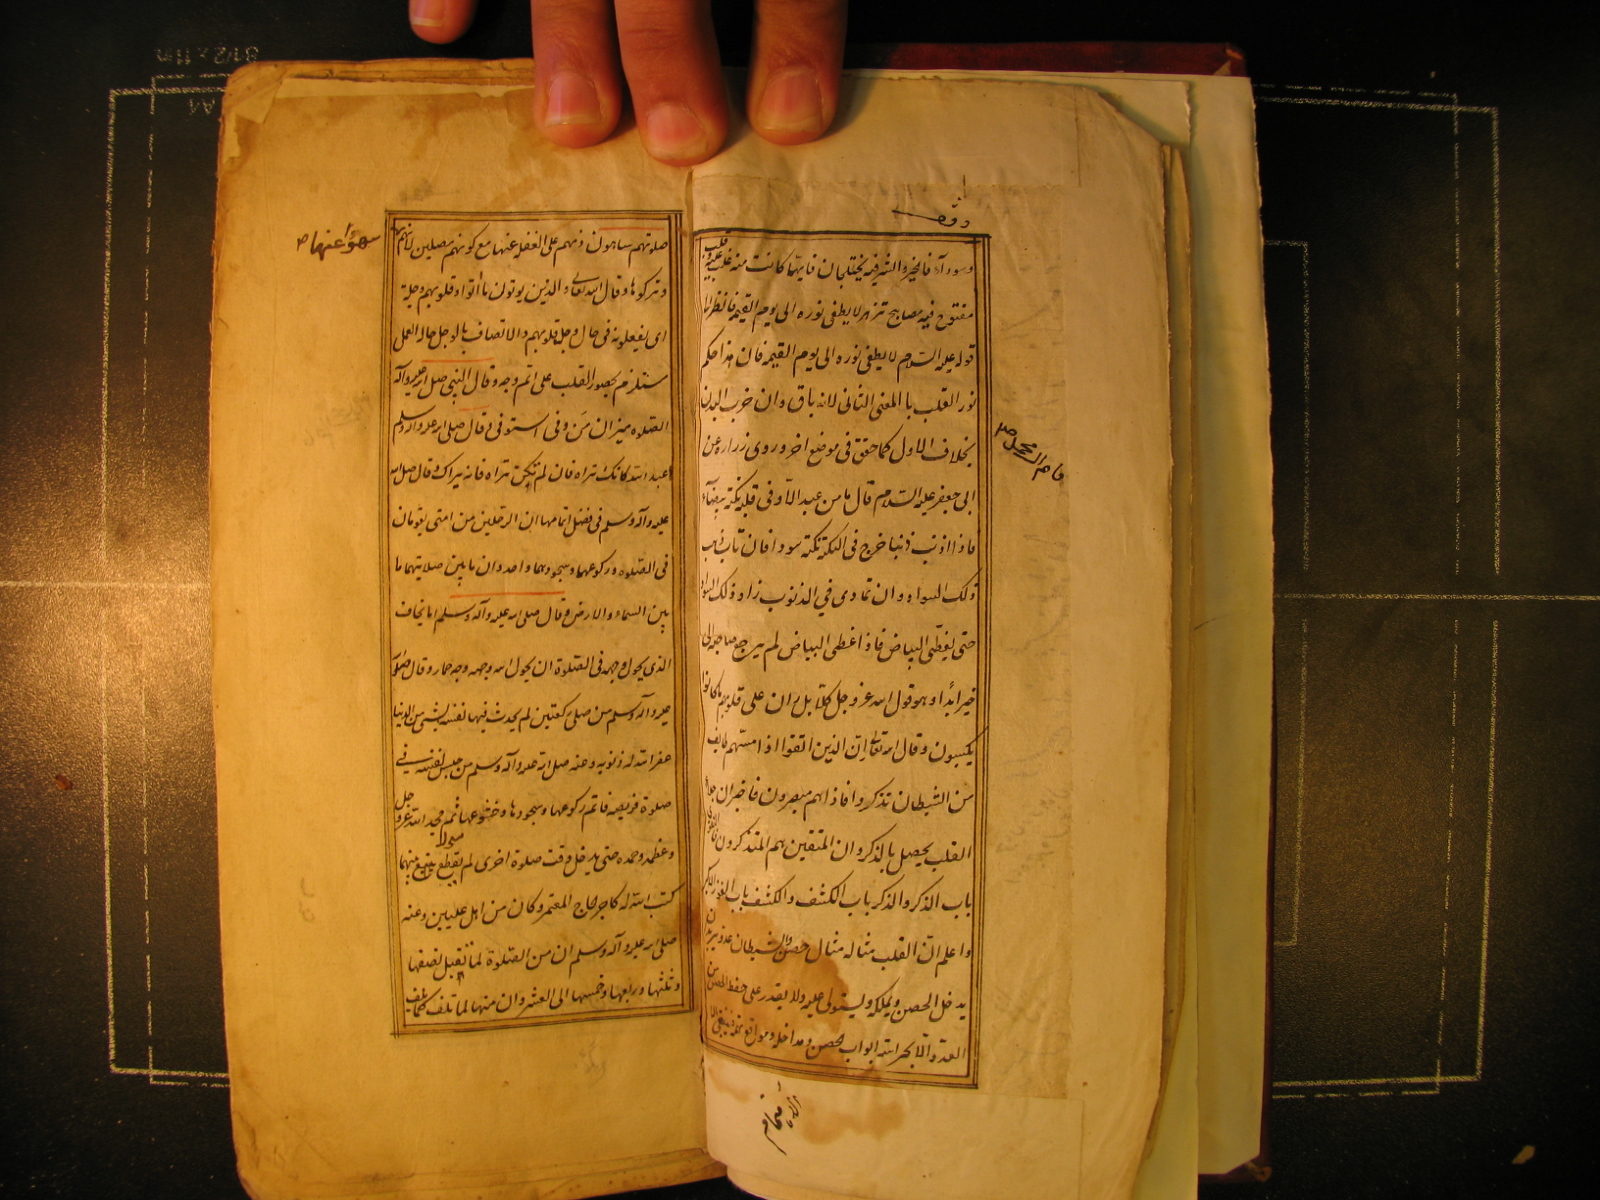 وقف
وسوداء فالخير والشر فيه يختلجان فايهما كانت منه غلب عليه وقلب
مفتوح فيه مصابيح تزهر لا يطفى نوره الى يوم القيمة فانظر الى
قوله عليه السلام لا يطفى نوره الى يوم القيمة فان هذا حكم
نور القلب بالمعنى الثانى لانه باق وان خرب البدن
بخلاف الاول كما حقق فى موضع اخر وروى زراره عن
ابى جعفر عليه السلام قال ما من عبد الا وفى قلبه نكتة بيضاء
فاذا اذنب ذنبا خرج فى النكتة نكتة سودا فان تاب ذهب
ذلك السواد وان تمادى في الذنوب زاد ذلك السواد
حتى يغطى البياض فاذا غطى البياض لم يرجع صاحبه الى
خير ابدا وهو قول الله عز وجل كلا بل ران على قلوبهم ما كانوا
يكسبون وقال الله تعالى ان الذين اتقوا اذا مستهم طايف
من الشيطان تذكروا فاذا هم مبصرون فاخبر ان جلاء
القلب يحصل بالذكر وان المتقين هم المتذكرون
باب الذكر والذكر باب الكشف والكشف باب الفوز الاكبر
واعلم ان القلب مثاله مثال حصن والشيطان عدو يريد ان
يدخل الحصن ويملكه ويستولى عليه ولا يقدر على حفظ الحصن من
العدو الا بحراسة ابواب الحصن ومداخله ومواقع
صلوتهم ساهون ذمهم على الغفلة عنها مع كونهم مصلين لا لانهم
سهوا عنها
وتركوها وقال الله تعالى والذين يوتون ما اتوا وقلوبهم وجلة
اى يفعلونه فى حال وجل قلوبهم والاتصاف بالوجل حالة العمل
يستلزم بحضور القلب على اتم وجه وقال النبى صلى الله عليه وآله
الصلوة ميزان من وفى استوفى وقال صلى الله عليه واله وسلم
اعبد الله كانك تراه فان لم تكن تراه فانه يراك وقال صلى الله
عليه وآله وسلم فى فضل اتمامها ان الرجلين من امتى يقومان
فى الصلوة وركوعهما وسجودهما واحد وان ما بين صلاتيهما ما
بين السماء والارض وقال صلى الله عليه وآله وسلم اما يخاف
الذى يحول وجهه فى الصلوة ان يحول الله وجهه وجه حمار وقال صلى الله
عليه وآله وسلم من صلى ركعتين لم يحدث فيهما نفسه بشىء من الدنيا
غفر الله له ذنوبه وعنه صلى الله عليه وآله وسلم من حبس نفسه في
صلوة فريضه فاتم ركوعها وسجودها وخشوعها ثم مجد الله عز وجل
وعظمه وحمده حتى يدخل وقت صلوة اخرى لم يلغ بينهما
كتب الله له كاجر الحاج المعتمر وكان من اهل عليين وعنه
صلى الله عليه وآله وسلم ان من الصلوة لما تقبل نصفها
وثلثها وربعها وخمسها الى العشر وان منها لما تلف كما يلف